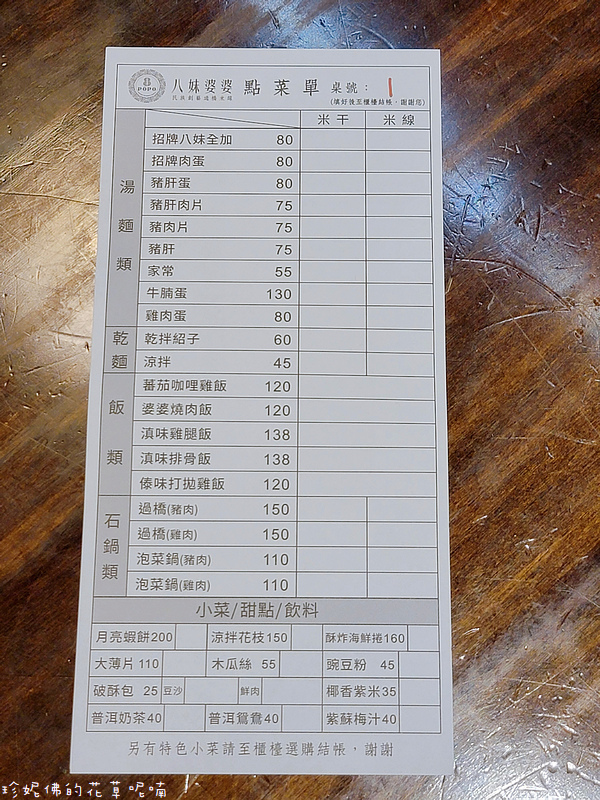 POPO 八妹婆婆 點菜單 桌號： 1
民族創藝造橋老種
(填好後至櫃檯結帳，謝謝您)
米干 米線
湯麵類
招牌八妹全加 80
招牌肉蛋 80
豬肝蛋 80
豬肝肉片 75
豬肉片 75
豬肝 75
家常 55
牛腩蛋 130
雞肉蛋 80
乾麵
乾拌紹子 60
涼拌 45
飯類
蕃茄咖哩雞飯 120
婆婆燒肉飯 120
滇味雞腿飯 138
滇味排骨飯 138
傣味打拋雞飯 120
石鍋類
過橋(豬肉) 150
過橋(雞肉) 150
泡菜鍋(豬肉) 110
泡菜鍋(雞肉) 110
小菜/甜點/飲料
月亮蝦餅200 涼拌花枝150 酥炸海鮮捲160
大薄片110 木瓜絲 55 豌豆粉 45
破酥包 25 豆沙 鮮肉 椰香紫米35
普洱奶茶40 普洱鴛鴦40 紫蘇梅汁40
另有特色小菜請至櫃檯選購結帳，謝謝
珍妮佛的花草呢喃